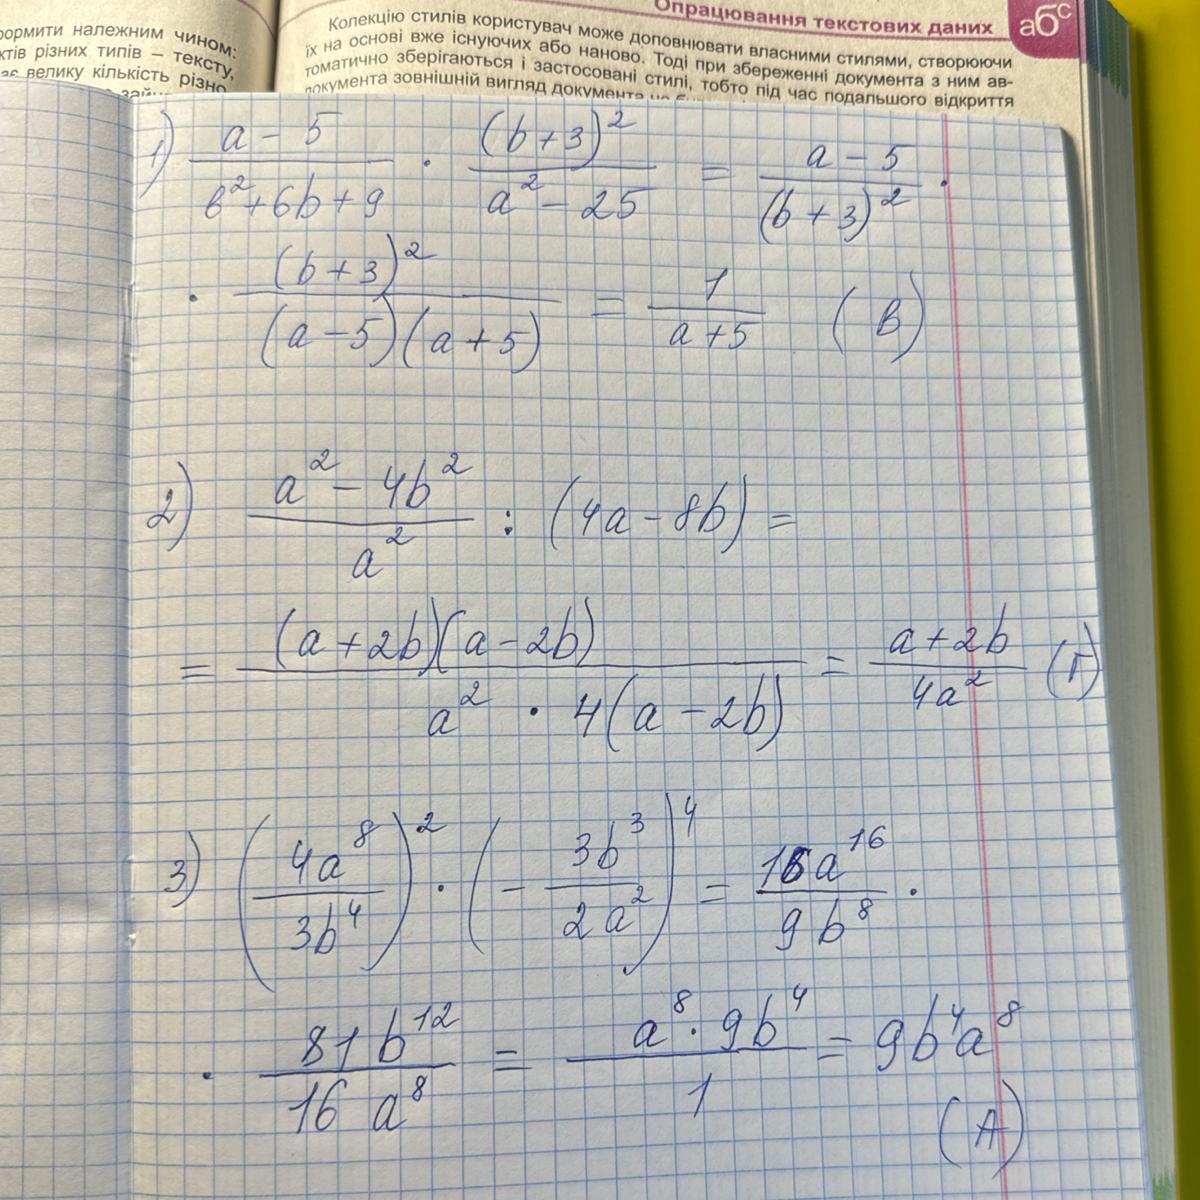 Опрацювання текстових даних
абс
ормити належним чином:
ктів різних типів – тексту,
велику кількість різно
Колекцію стилів користувач може доповнювати власними стилями, створюючи
їх на основі вже існуючих або наново. Тоді при збереженні документа з ним ав-
томатично зберігаються і застосовані стилі, тобто під час подальшого відкриття
документа зовнішній вигляд документа не
1) (a - 5)/(b² + 6b + 9) · (b + 3)²/(a² - 25) = (a - 5)/(b + 3)² ·
· (b + 3)²/((a - 5)(a + 5)) = 1/(a + 5) (В)
2) (a² - 4b²)/a² : (4a - 8b) =
= ((a + 2b)(a - 2b))/(a² · 4(a - 2b)) = (a + 2b)/(4a²) (Г)
3) (4a⁸/3b⁴)² · (- 3b³/2a²)⁴ = 16a¹⁶/9b⁸ ·
· 81b¹²/16a⁸ = (a⁸ · 9b⁴)/1 = 9b⁴a⁸
(А)